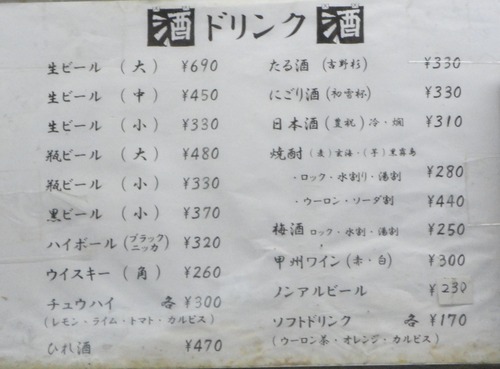 酒 ドリンク 酒
生ビール （大） ¥690
生ビール （中） ¥450
生ビール （小） ¥330
瓶ビール （大） ¥480
瓶ビール （小） ¥330
黒ビール （小） ¥370
ハイボール（ブラックニッカ） ¥320
ウイスキー （角） ¥260
チュウハイ 各 ¥300
（レモン・ライム・トマト・カルピス）
ひれ酒 ¥470
たる酒 （吉野杉） ¥330
にごり酒（初雪杯） ¥330
日本酒（豊祝）冷・燗 ¥310
焼酎 （麦）玄海・（芋）黒霧島
・ロック・水割り・湯割 ¥280
・ウーロン・ソーダ割 ¥440
梅酒 ロック・水割・湯割 ¥250
甲州ワイン（赤・白） ¥300
ノンアルビール ¥230
ソフトドリンク 各 ¥170
（ウーロン茶・オレンジ・カルピス）